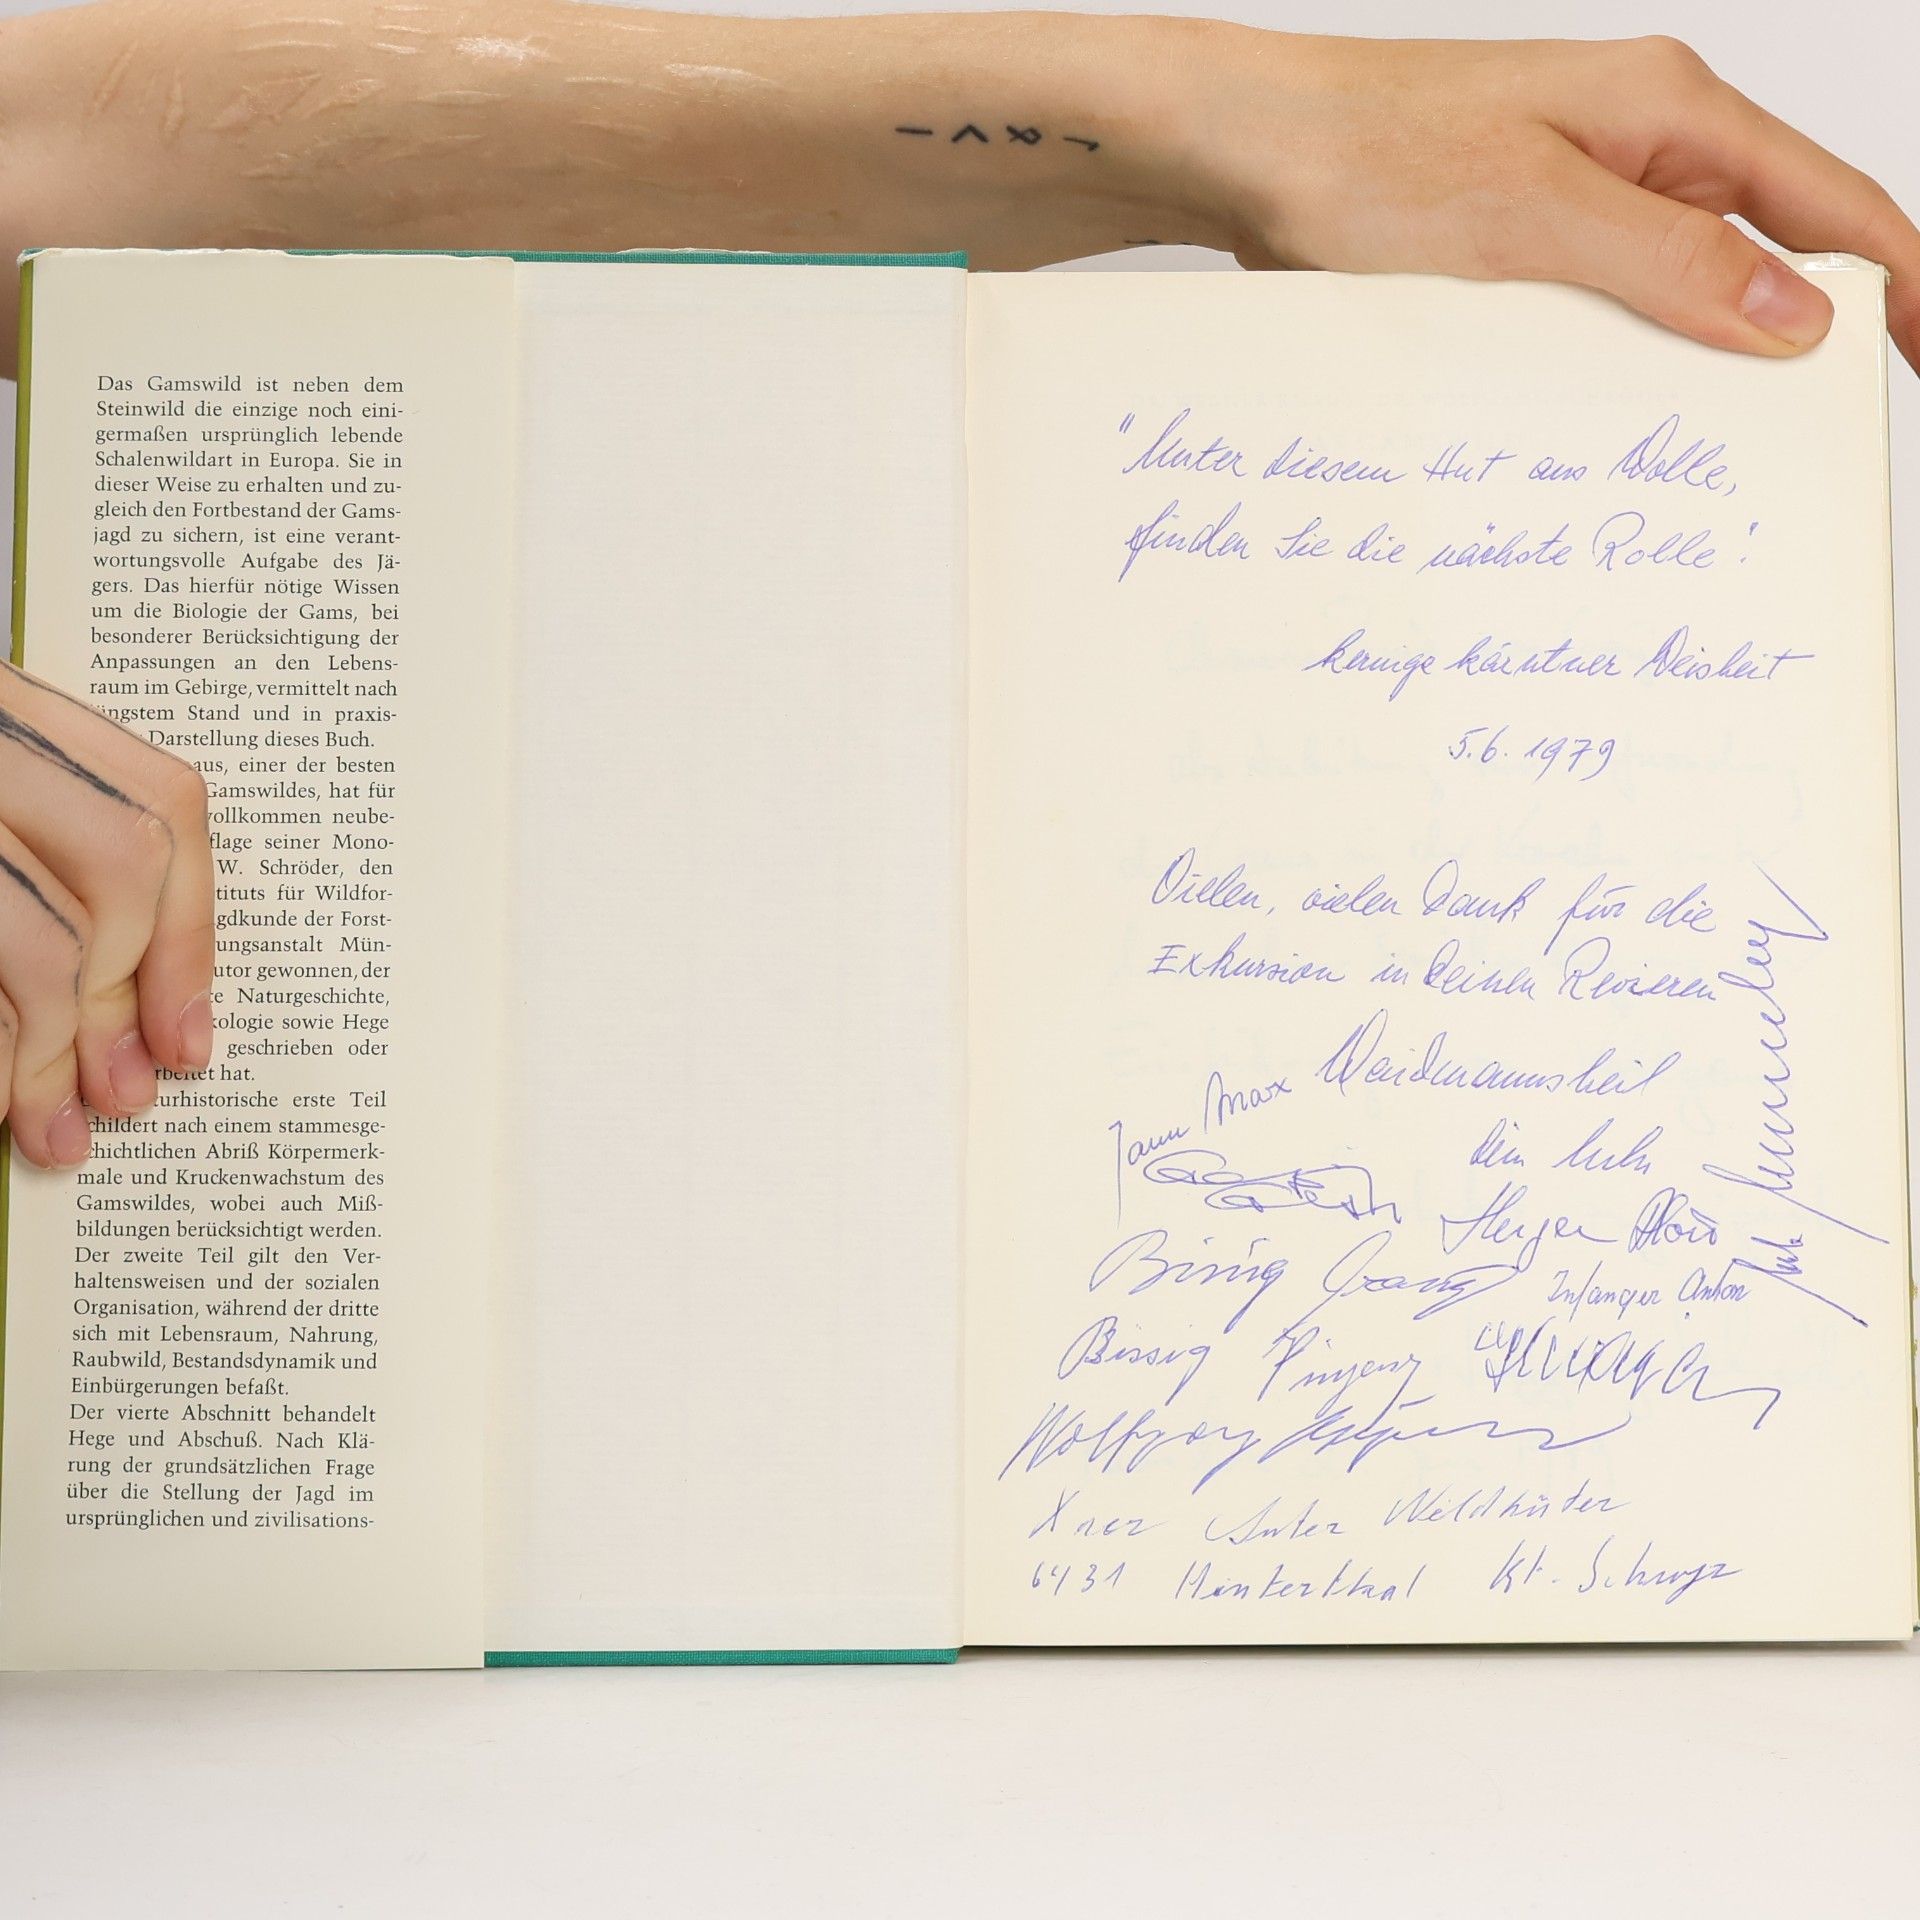 Das Gamswild ist neben dem
Steinwild die einzige noch eini-
germaßen ursprünglich lebende
Schalenwildart in Europa. Sie in
dieser Weise zu erhalten und zu-
gleich den Fortbestand der Gams-
jagd zu sichern, ist eine verant-
wortungsvolle Aufgabe des Jä-
gers. Das hierfür nötige Wissen
um die Biologie der Gams, bei
besonderer Berücksichtigung der
Anpassungen an den Lebens-
raum im Gebirge, vermittelt nach
jüngstem Stand und in praxis-
Darstellung dieses Buch.
aus, einer der besten
Gamswildes, hat für
vollkommen neube-
flage seiner Mono-
W. Schröder, den
tituts für Wildfor-
gdkunde der Forst-
ungsanstalt Mün-
utor gewonnen, der
te Naturgeschichte,
kologie sowie Hege
geschrieben oder
rbeitet hat.
turhistorische erste Teil
schildert nach einem stammesge-
schichtlichen Abriß Körpermerk-
male und Kruckenwachstum des
Gamswildes, wobei auch Miß-
bildungen berücksichtigt werden.
Der zweite Teil gilt den Ver-
haltensweisen und der sozialen
Organisation, während der dritte
sich mit Lebensraum, Nahrung,
Raubwild, Bestandsdynamik und
Einbürgerungen befaßt.
Der vierte Abschnitt behandelt
Hege und Abschuß. Nach Klä-
rung der grundsätzlichen Frage
über die Stellung der Jagd im
ursprünglichen und zivilisations-
"Unter diesem Hut aus Wolle,
finden Sie die nächste Rolle".
kernige kärntner Weisheit
5.6.1979
Vielen, vielen Dank für die
Exkursion in Deinen Revieren
Waidmannsheil
Jann Marx
dein
Herger
Infanger Anton
Bissig
Bissig
Wolfgang
Wildhüter
6431 Hinterthal Kt. Schwyz